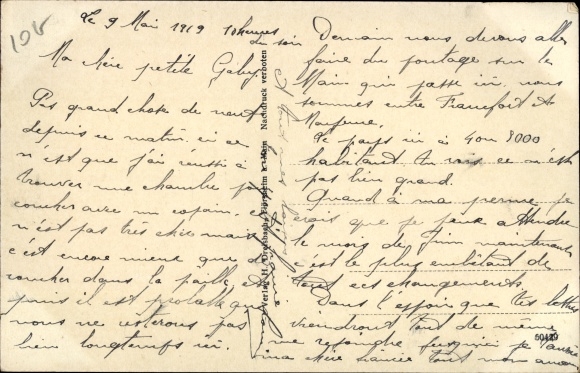 10V
Le 9 Mai 1919 10 heures
du soir
Ma chère petite Gaby,
Pas grand chose de neuf
depuis ce matin, si ce
n'est que j'ai réussi à
trouver une chambre pour
coucher avec un copain, ce
n'est pas très chic mais
c'est encore mieux que de
coucher dans la paille, et
puis il est probable que
nous ne resterons pas
bien longtemps ici.
Demain nous devons aller
faire du pontage sur le
Main qui passe ici, nous
sommes entre Francfort et
Mayence.
Le pays ici à 4 ou 5000
habitant tu vois ce n'est
pas bien grand.
Quand à ma perme je
crois que je peux attendre
le mois de Juin maintenant
c'est le plus embêtant de
tous ces changements.
Dans l'espoir que tes lettres
viendront tout de même
me rejoindre jusqu'ici je t'envoie
ma chère fiancée tout mon amour
Verlag H. Dreisbach, Flörsheim a. Main Nachdruck verboten
60429